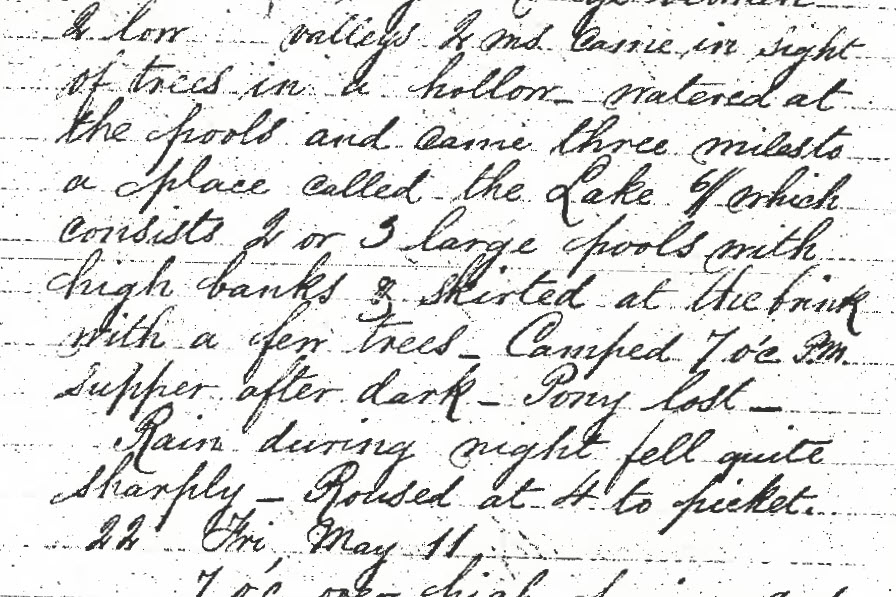 2 low valleys 2 ms. came in sight
of trees in a hollow - watered at
the pools and came three miles to
a place called the Lake 6// which
consists 2 or 3 large pools with
high banks & skirted at the brink
with a few trees - Camped 7 o'c P.M.
Supper after dark - Pony lost -
Rain during night fell quite
sharply - Roused at 4 to picket.
22 Fri, May 11
7 o'c over high